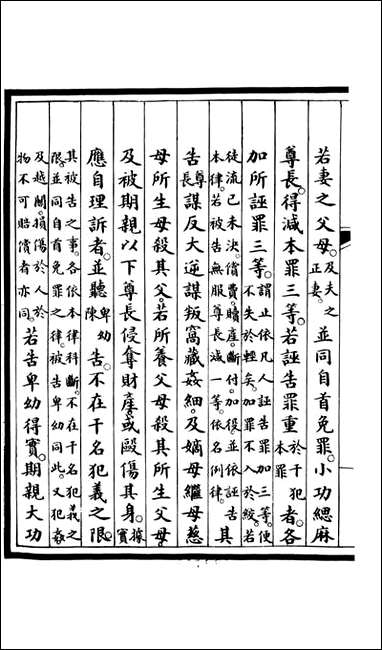 若妻之父母。及夫之正妻。並同自首免罪。小功緦麻
尊長。得減本罪三等。若誣告罪重於干犯本罪者。各
加所誣罪三等。謂止依凡人誣告罪加三等。便不失於輕矣。加罪不入於絞。若
徒流已未決。償費。贖產。斷付。加役。並依誣告本律。若被告無服尊長。減一等。依名例律。其
告尊長謀反大逆謀叛窩藏姦細。及嫡母繼母慈
母所生母殺其父。若所養父母殺其所生父母。
及被期親以下尊長侵奪財產。或毆傷其身。據實
應自理訴者。並聽卑幼陳告。不在干名犯義之限。
其被告之事。各依本律科斷。不在干名犯義之限。並同自首免罪之律。被告卑幼同此。又犯姦
及越關。損傷於人於物不可賠償者亦同。若告卑幼得實。期親大功